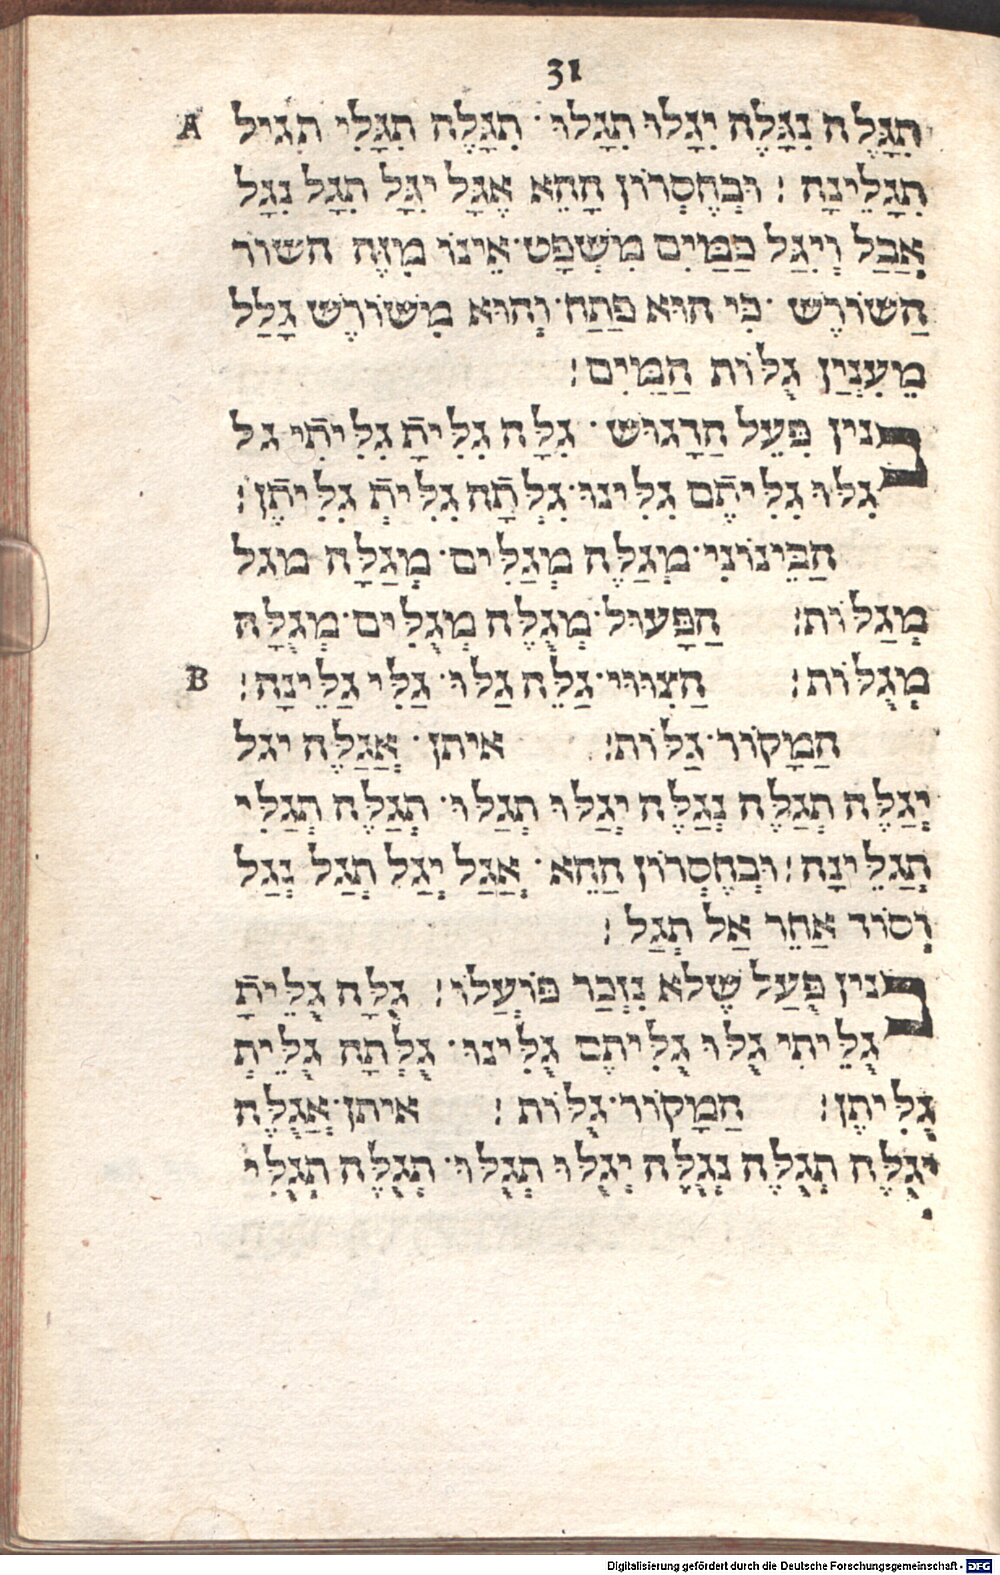 31
A תִּגָּלֶה נִגָּלֶה יִגָּלוּ תִגָּלוּ· תִּגָּלֶה תִגָּלִי תגיל
תִגָּלֵינָה׃ וּבְחֶסְרוֹן הַהֵא אֶגָּל יִגָּל תִגָּל נִגָּל
אֲבַל וְיִגַּל כַּמַּיִם מִשְׁפָּט·אֵינוֹ מִזֶּה השור
הַשׁוֹרֶשׁ ·כִּי הוּא פַתַּח·וְהוּא מִשּׁוֹרֶשׁ גָלַל
מֵעִנְיַן גֻלּוֹת הַמַּיִם׃
בנין פִּעֵל הַדָגוּשׁ· גִלָּה גִלִּיתָ גִלִּיתִי גל
גִלּוּ גִלִּיתֶם גִלִּינוּ·גִלְּתָה גִלִּית גִלִּיתֶן׃
הַבֵּינוֹנִי·מְגַלֶּה מְגַלִּים·מְגַלָּה מגל
מְגַלּוֹת׃ הַפָּעוּל·מְגֻלֶּה מְגֻלִּים·מְגֻלָּה
B מְגֻלּוֹת׃ הַצִוּוּי·גַלֵּה גַלּוּ· גַלִּי גַלֵּינָה׃
הַמָקוֹר·גַלּוֹת׃ איתן· אֲגַלֶּה יגל
יְגַלֶּה תְגַלֶּה נְגַלֶּה יְגַלּוּ תְגַלּוּ· תְּגַלֶּה תְגַלִּי
תְּגַלֵּינָה׃ וּבְחֶסְרוֹן הַהֵא· אֲגַל יְגַל תְגַל נְגַל
וְסוֹד אַחֵר אַל תְּגַל׃
בנין פֻּעַל שֶׁלֹא נִזְכַּר פּוֹעֲלוֹ׃ גֻלָּה גֻלֵּיתָ
גֻלֵּיתִי גֻלּוּ גֻלִּיתֶם גֻלִּינוּ· גֻלְּתָה גֻלֵּית
גֻלִּיתֶן׃ הַמָקוֹר·גֻלּוֹת׃ איתן·אֲגֻלֶּה
יְגֻלֶּה תְגֻלֶּה נְגֻלֶּה יְגֻלּוּ תְגֻלּוּ· תְּגֻלֶּה תְגֻלִּי
Digitalisierung gefördert durch die Deutsche Forschungsgemeinschaft - DFG